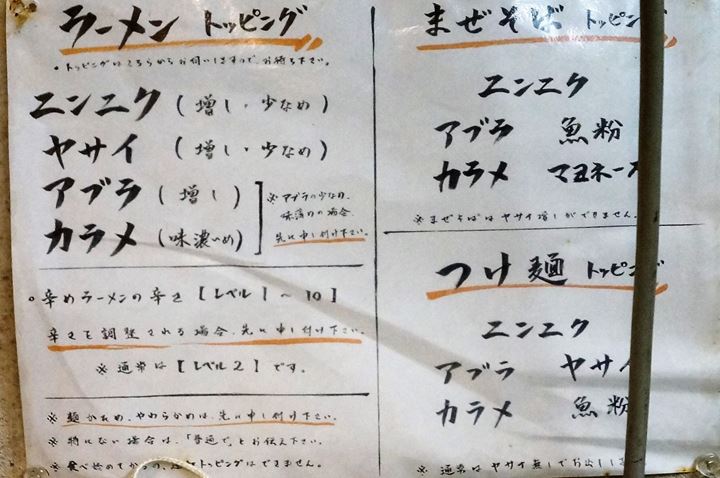 ラーメン トッピング
。トッピングはこちらからお伺いしますので、お待ち下さい。
ニンニク (増し・少なめ)
ヤサイ (増し・少なめ)
アブラ (増し)
カラメ (味濃いめ)
※アブラの少なめ、
味薄めの場合、
先に申し付け下さい。
。辛めラーメンの辛さ【レベル1〜10】
辛さを調整される場合、先に申し付け下さい。
※通常は【レベル2】です。
※麺かため、やわらかめは、先に申し付け下さい。
※特にない場合は、「普通で」とお伝え下さい。
※食べ始めてからの、追 トッピングはできません。
まぜそば トッピング
ニンニク
アブラ 魚粉
カラメ マヨネーズ
※まぜそばはヤサイ増しができません。
つけ麺 トッピング
ニンニク
アブラ ヤサイ
カラメ 魚粉
※通常はヤサイ無しでお出しし